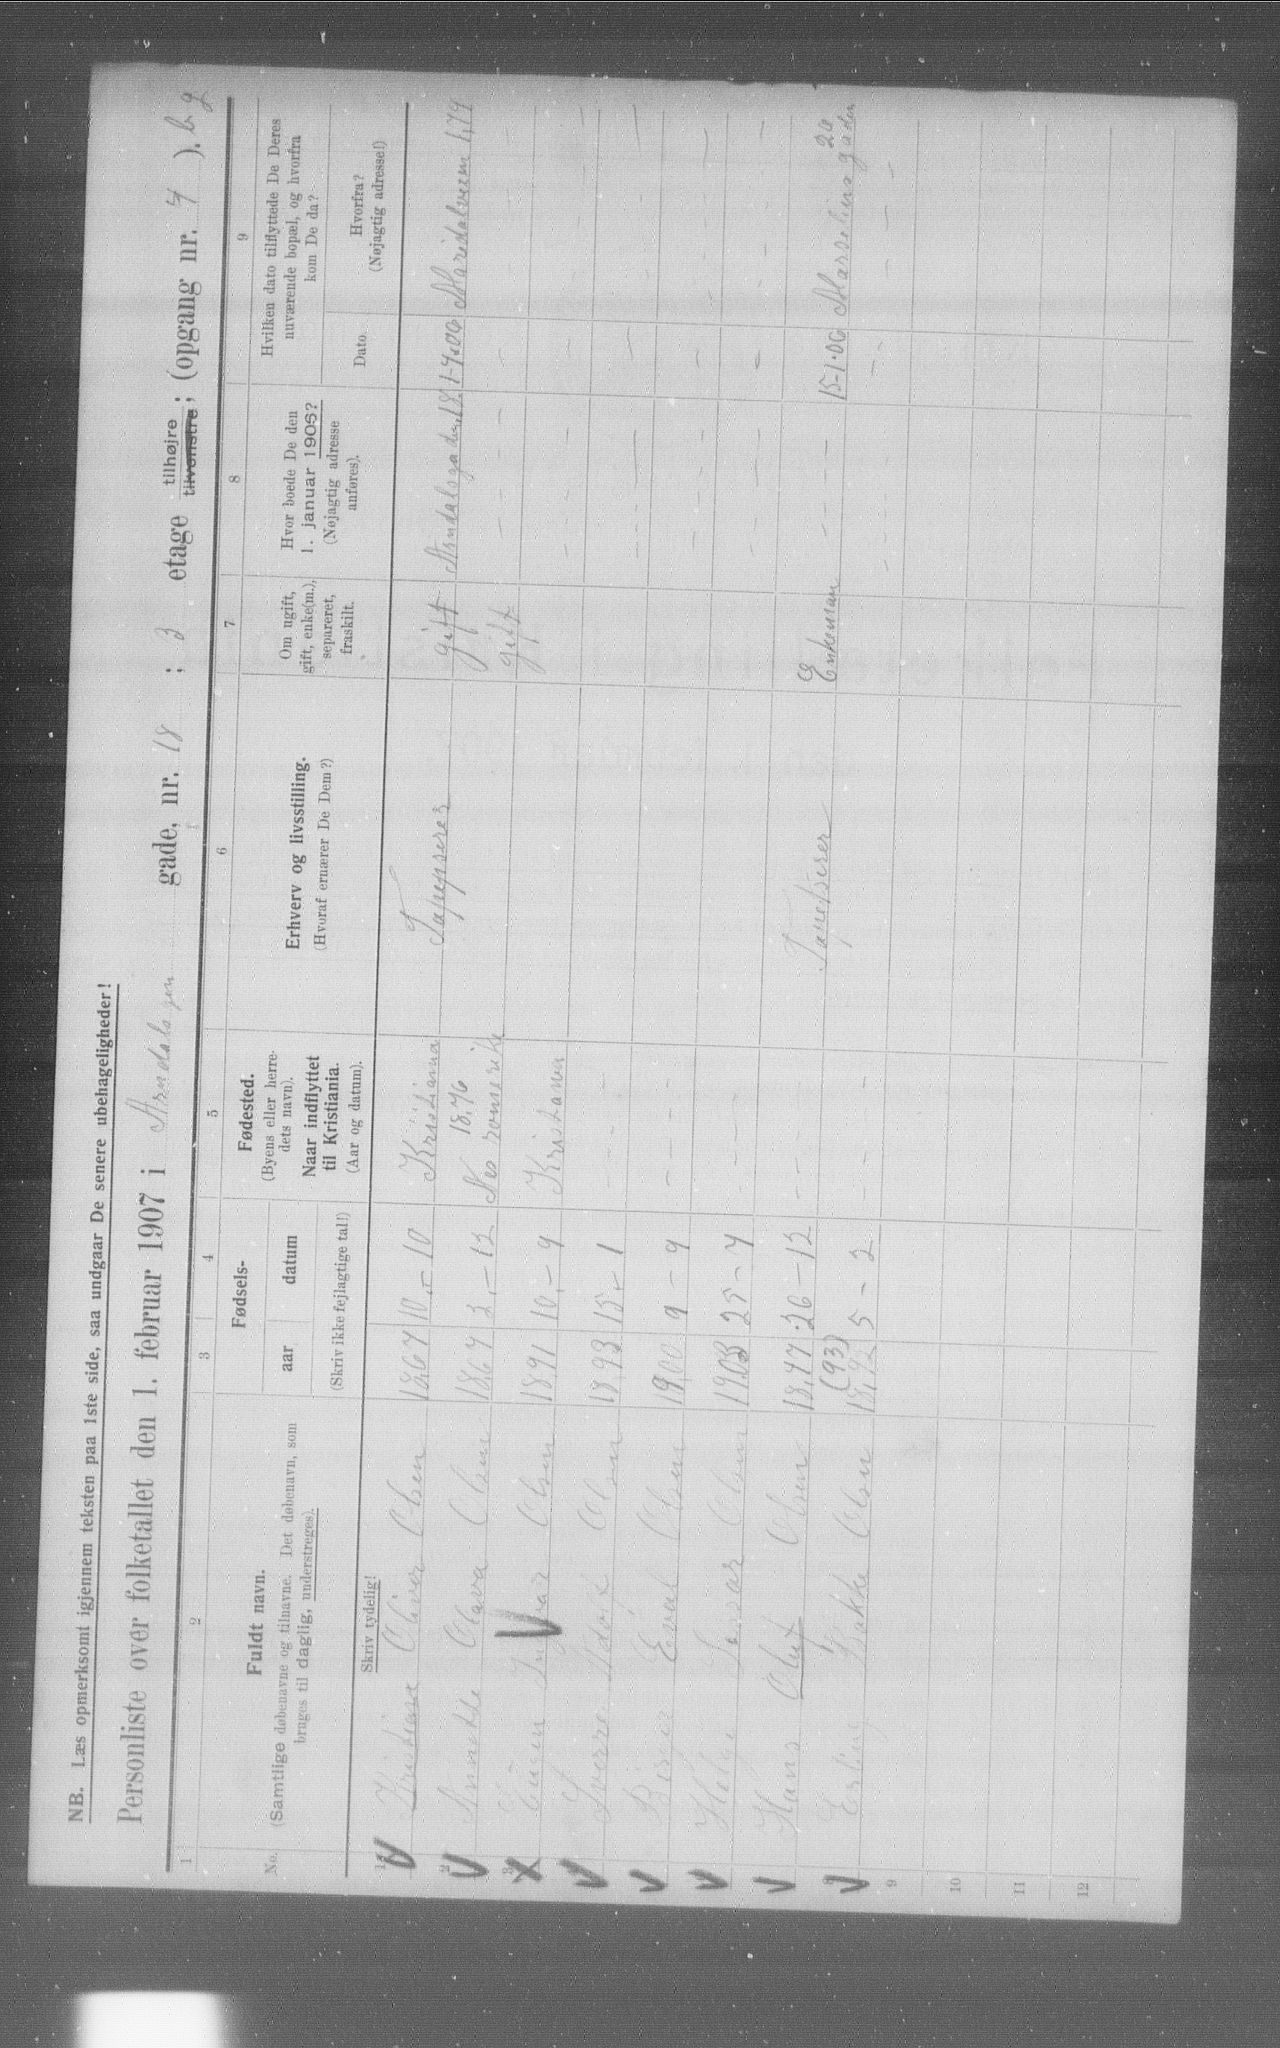 NB. Læs opmerksomt igjennem teksten paa 1ste side, saa undgaar De senere ubehageligheder!
Personliste over folketallet den 1. februar 1907 i Arndalsgen gade, nr. 18 ; 3 etage tilhøjre ; (opgang nr. 4 ). b g
tilvenstre
1 2 3 4 5 6 7 8 9
No.
Fuldt navn.
(Samtlige døbenavne og tilnavne. Det døbenavn, som
bruges til daglig, understreges).
Fødsels-
aar datum
Fødested.
(Byens eller herre-
dets navn).
Naar indflyttet
til Kristiania.
(Aar og datum).
Erhverv og livsstilling.
(Hvoraf ernærer De Dem?)
Om ugift,
gift, enke(m.),
separeret,
fraskilt.
Hvor boede De den
1. januar 1906?
(Nøjagtig adresse
anføres).
Hvilken dato tilflyttede De Deres
nuværende bopæl, og hvorfra
kom De da?
Dato
Hvorfra?
(Nøjagtig adresse!)
Skriv tydelig!
(Skriv ikke fejlagtige tal!)
1 Kristian Oliver Olsen 1867 10 - 10 Kristiania Tapeserer gift Arndalsgaden 18 1-4-06 Maridalsveien
2 Olava Olsen 1867 3 - 12 1876 Nes romerike gift
3 Olsen 1891 10 - 9 Kristiania
Sverre Adolf Olsen 1893 15 - 1
Birger Olsen 1900 9 - 9
Helge Olsen 1903 25 - 4
Hans Oluf Olsen 1877 26 - 12 Tapetserer Enkeman 15-1-06 Marselius gaden 26
Erling Olsen (93) 1892 5 - 2
9
10
11
12